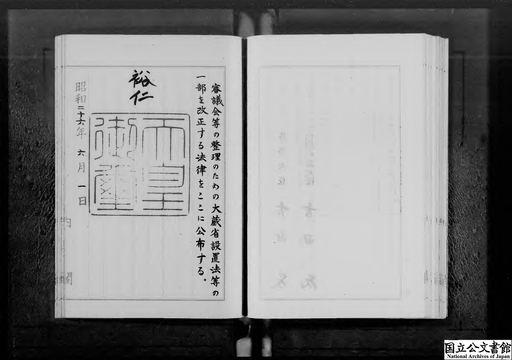 審議会等の整理のための大蔵省設置法等の
一部を改正する法律をここに公布する。
裕仁
天皇
御璽
昭和二十六年六月一日
内閣
国立公文書館
National Archives of Japan